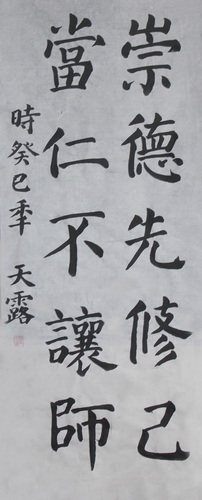 崇德先修己
當仁不讓師
時癸巳季 天露